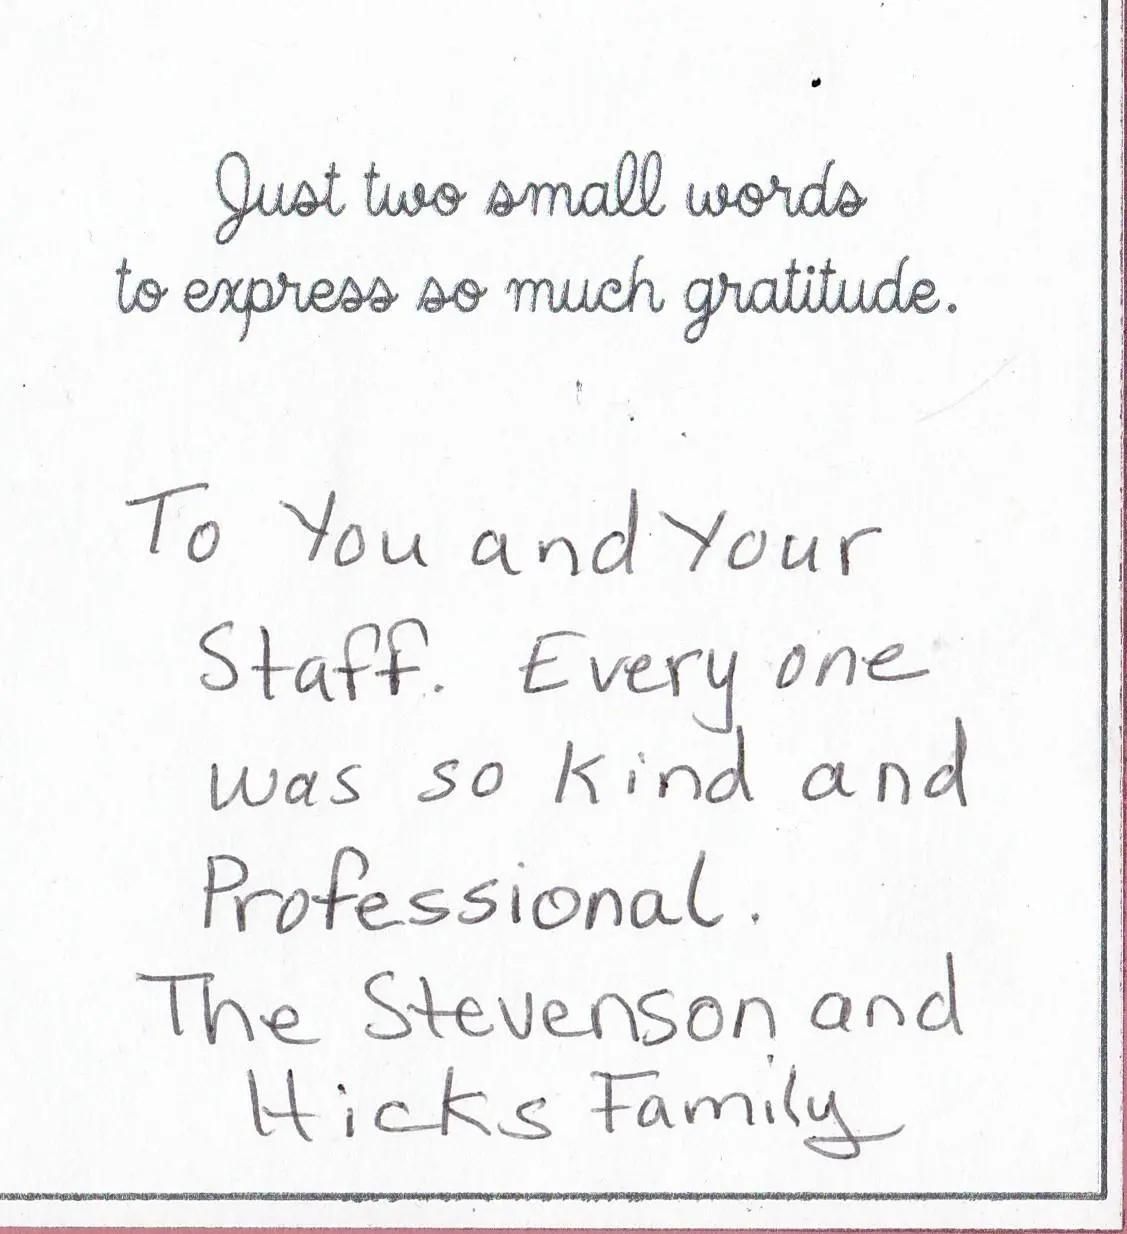 Just two small words
to express so much gratitude.
To You and Your
Staff. Every one
was so kind and
Professional.
The Stevenson and
Hicks Family